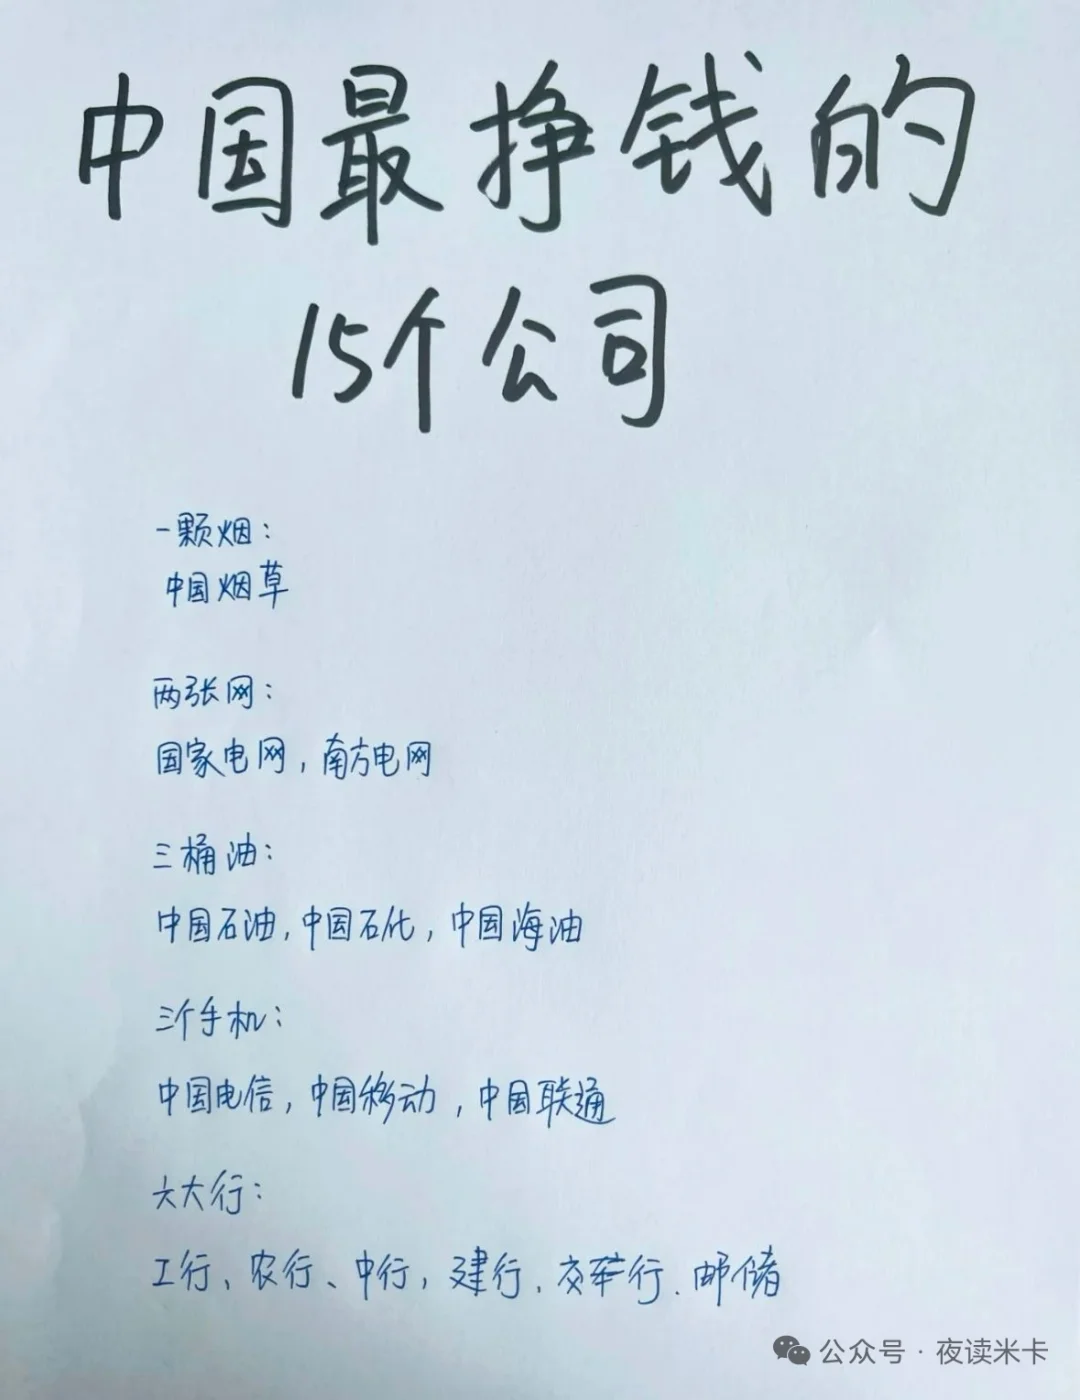 中国最挣钱的
15个公司
一颗烟：
中国烟草
两张网：
国家电网，南方电网
三桶油：
中国石油，中国石化，中国海油
三个手机：
中国电信，中国移动，中国联通
六大行：
工行、农行、中行，建行、交华行、邮储
公众号·夜读米卡